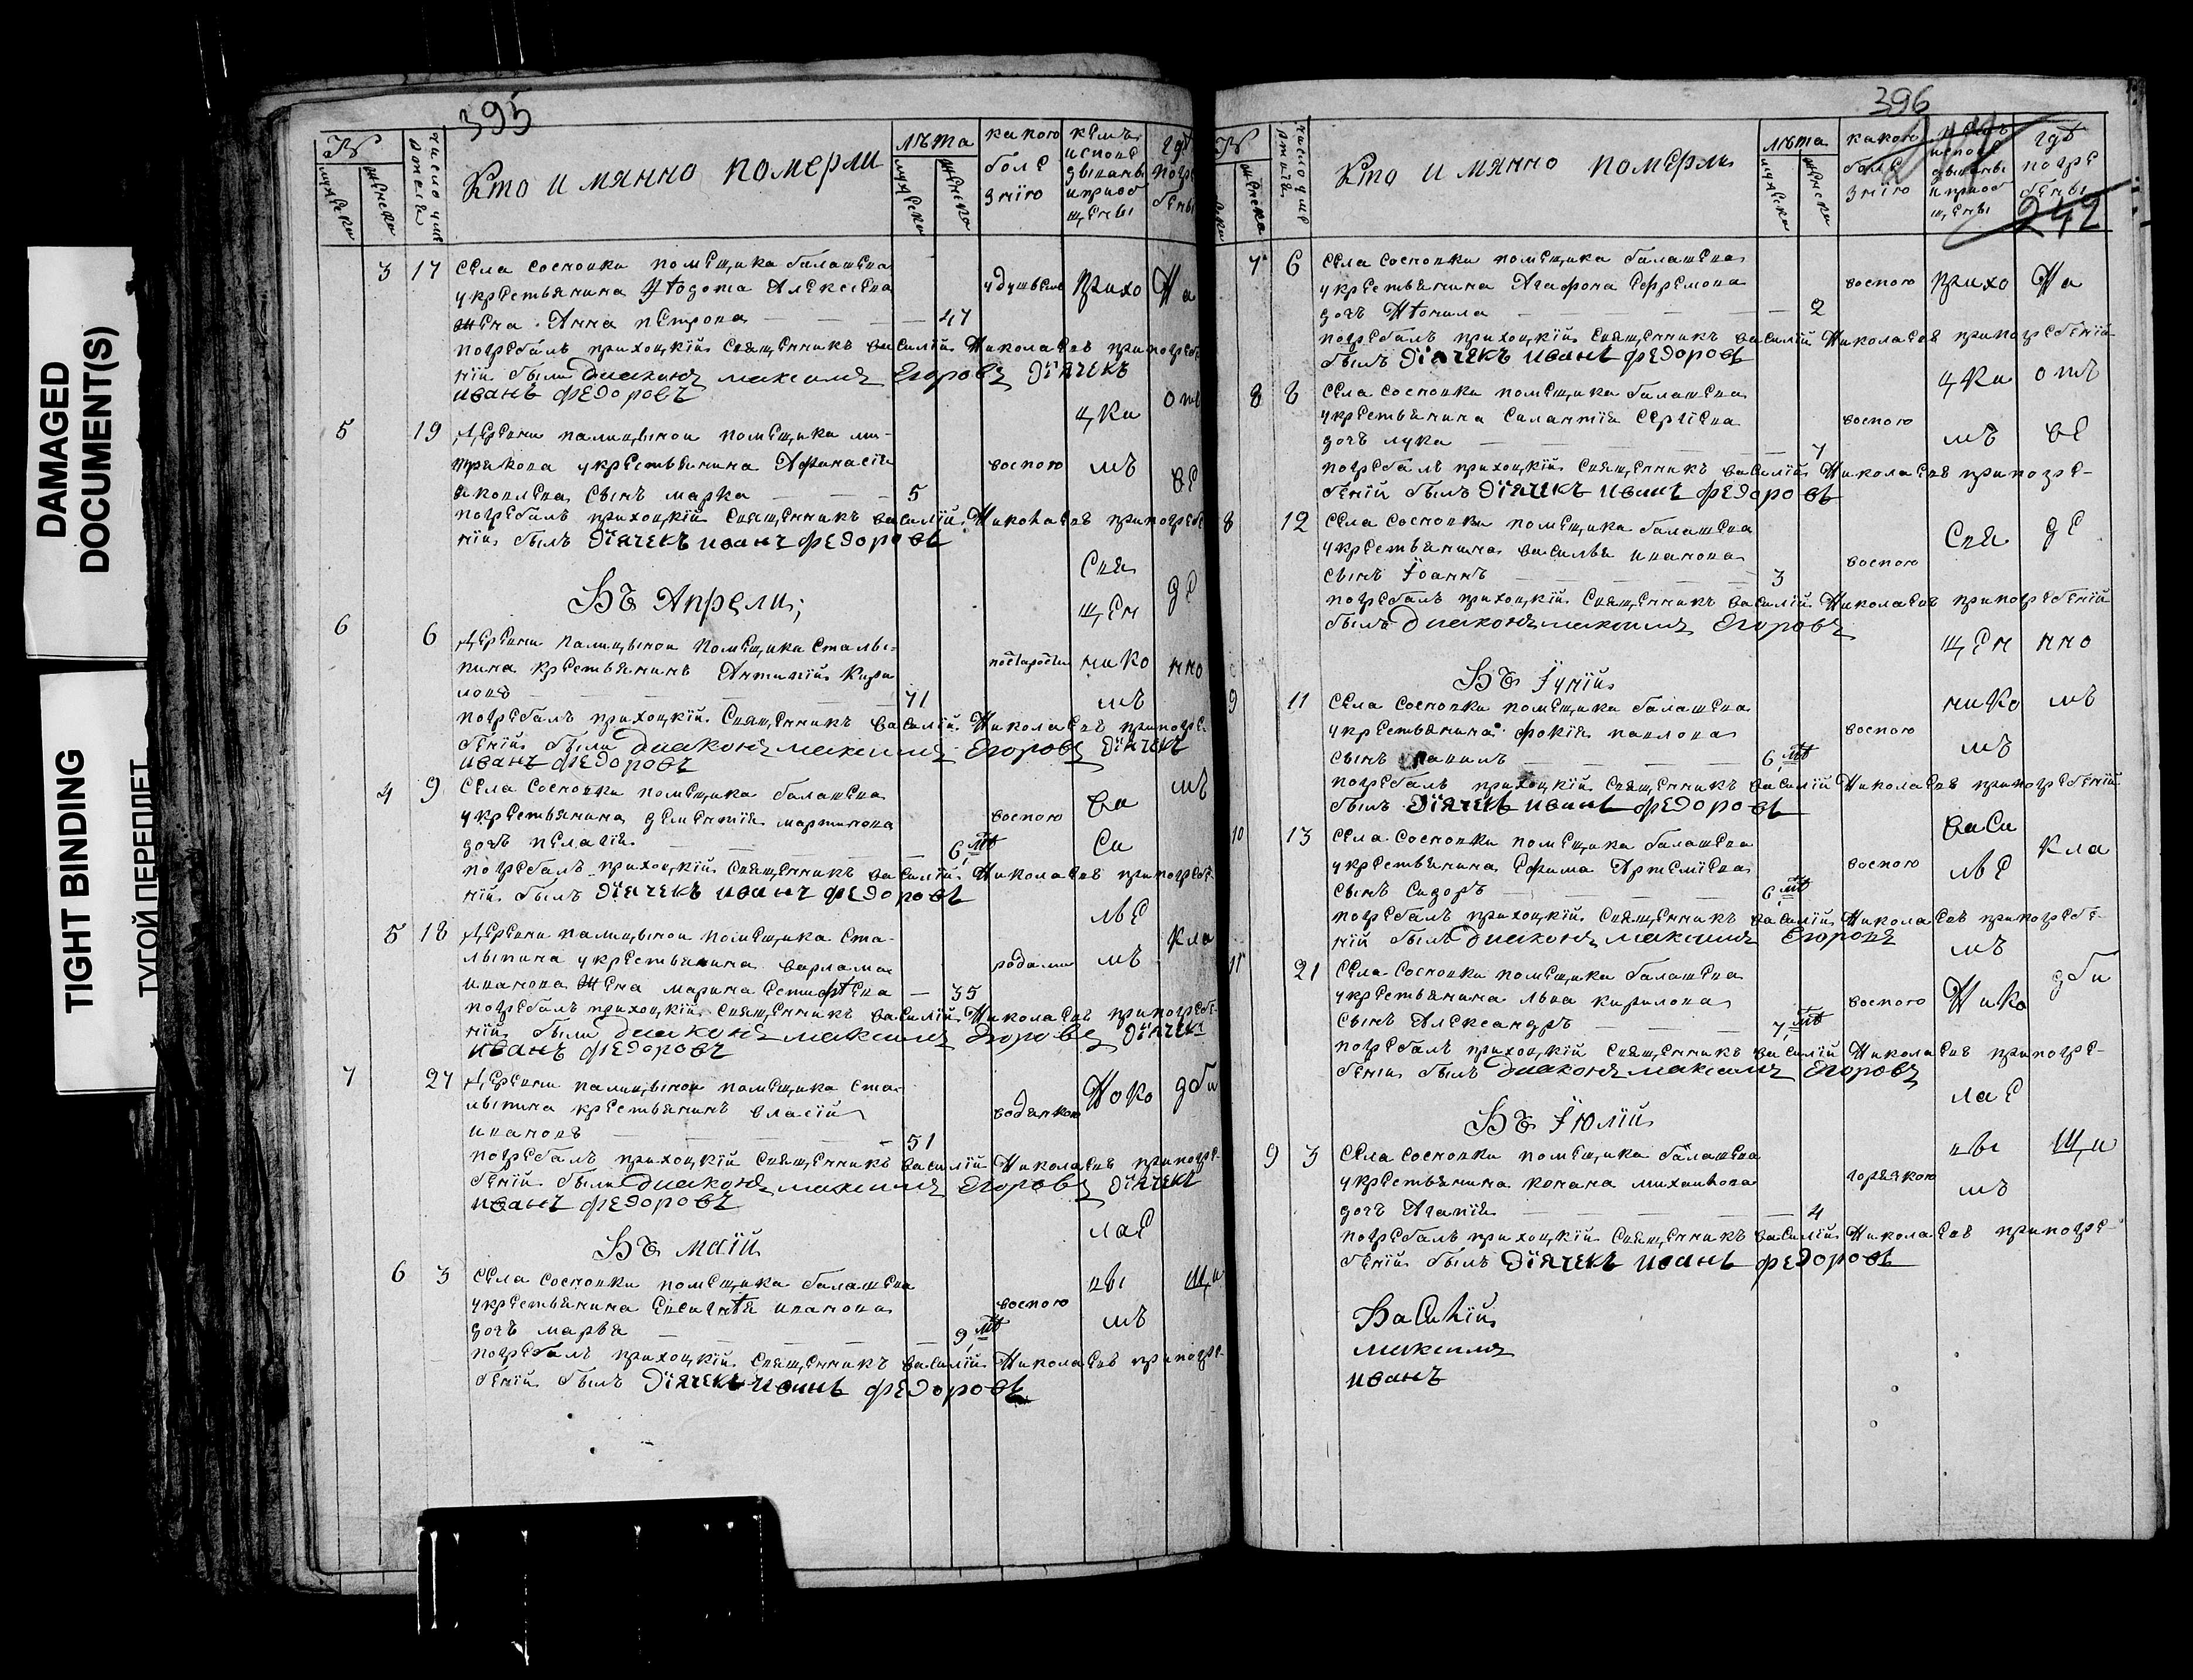 DAMAGED
DOCUMENT(S)
TIGHT BINDING
ТУГОЙ ПЕРЕПЛЕТ
395
№
мужеска
женска
число умертвія
Кто имянно померли
лѣта
мужеска
женска
какою болезнію
кемъ исповедываны и приобщены
где погребены
3 17 села сосновки помещика балашева
у крестьянина Ѳедота Алексеева
жена Анна петрова — — — 47
удушьем
погребалъ прихоцкій священникъ василій Николаевъ при погребе
ніи были диаконъ максимъ Егоровъ Дїячекъ
иванъ федоровъ
5 19 Деревни палицыной помещика ми-
трикова у крестьянина Афанасія
яковлева сынъ марка — — — 5
воспою
погребалъ прихоцкій священникъ василій Николаевъ при погребе
ніи былъ Дїячекъ иванъ федоровъ
Въ Апрели;
6 6 Деревни палицыной помещика сталы-
пина крестьянинъ Антипій Кири
ловъ — — — 71
постарости
погребалъ прихоцкій священникъ василій Николаевъ при погре-
беніи были диаконъ максимъ Егоровъ Дїячекъ
иванъ федоровъ
4 9 Села сосновки помещика балашева
у крестьянина дементїя мартинова
дочь пелагія — — — 6 мѣ
воспою
погребалъ прихоцкій священникъ василій Николаевъ при погребе-
ніи былъ Дїячекъ иванъ федоровъ
5 18 Деревни палицыной помещика ста-
лыпина у крестьянина варлама
иванова жена марина — 35
родами
погребалъ прихоцкій священникъ василій Николаевъ при погребе-
ніи были диаконъ максимъ Егоровъ Дїячекъ
иванъ федоровъ
7 27 Деревни палицыной помещика ста-
лыпина крестьянинъ власій
ивановъ — — — 51
водянкою
погребалъ прихоцкій священникъ василій Николаевъ при погре-
беніи были диаконъ максимъ Егоровъ Дїячекъ
иванъ федоровъ
Въ маїи
6 3 села сосновки помещика балашева
у крестьянина иванова
дочь марья — — — 9 мѣ
воспою
погребалъ прихоцкій священникъ василій Николаевъ при погре-
беніи былъ Дїячекъ иванъ федоровъ
Прихо
цки
мъ
Свя
щен
нико
мъ
ва
си
лье
мъ
Нико
лае
вы
мъ
На
отъ
ве
де
нно
мъ
кла
дби
щи
396
242
№
женска
число умертвія
Кто имянно померли
лѣта
мужеска
женска
какою болезнію
кемъ исповедываны и приобщены
где погребены
7 6 села сосновки помещика балашева
у крестьянина Агафона Ефремова
дочь — — — 2
воспою
погребалъ прихоцкій священникъ василій Николаевъ при погребеніи
былъ Дїячекъ иванъ федоровъ
8 8 села сосновки помещика балашева
у крестьянина Силантія Сергіева
дочь лука — — — 7
воспою
погребалъ прихоцкій священникъ василій Николаевъ при погре-
беніи былъ Дїячекъ иванъ федоровъ
8 12 села сосновки помещика балашева
у крестьянина василья иванова
сынъ Іоаннъ — — — 3
воспою
погребалъ прихоцкій священникъ василій Николаевъ при погребеніи
былъ диаконъ максимъ Егоровъ
Въ Іуніи
9 11 села сосновки помещика балашева
у крестьянина фокія павлова
сынъ — — — 6 мѣ
воспою
погребалъ прихоцкій священникъ василій Николаевъ при погребеніи
былъ Дїячекъ иванъ федоровъ
10 13 села сосновки помещика балашева
у крестьянина Ефима Артемїева
сынъ Сидоръ — — — 6 мѣ
воспою
погребалъ прихоцкій священникъ василій Николаевъ при погребе-
ніи былъ диаконъ максимъ Егоровъ
11 21 села сосновки помещика балашева
у крестьянина льва кирилова
сынъ Александръ — — — 7 мѣ
воспою
погребалъ прихоцкій священникъ василій Николаевъ при погре-
беніи былъ диаконъ максимъ Егоровъ
Въ Іюліи
9 3 села сосновки помещика балашева
у крестьянина конана михайлова
дочь Агапія — — — 4
горячкою
погребалъ прихоцкій священникъ василій Николаевъ при погре-
беніи былъ Дїячекъ иванъ федоровъ
Василій
максимъ
иванъ
Прихо
цки
мъ
Свя
щен
нико
мъ
васи
лье
мъ
Нико
лае
вы
мъ
На
отъ
ве
де
нно
мъ
кла
дби
щи